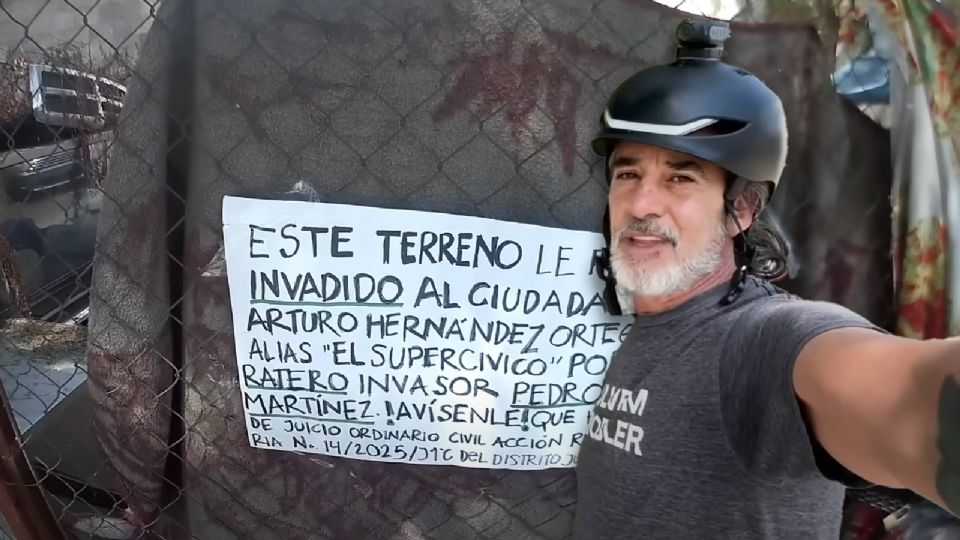 ESTE TERRENO LE
INVADIDO AL CIUDADA
ARTURO HERNÁNDEZ ORTE
ALIAS "EL SUPERCIVICO" PO
RATERO INVASOR PEDRO
MARTÍNEZ. ¡AVÍSENLE! QUE
DE JUICIO ORDINARIO CIVIL ACCIÓN R
RIA No. 14/2025/J1C DEL DISTRITO JU